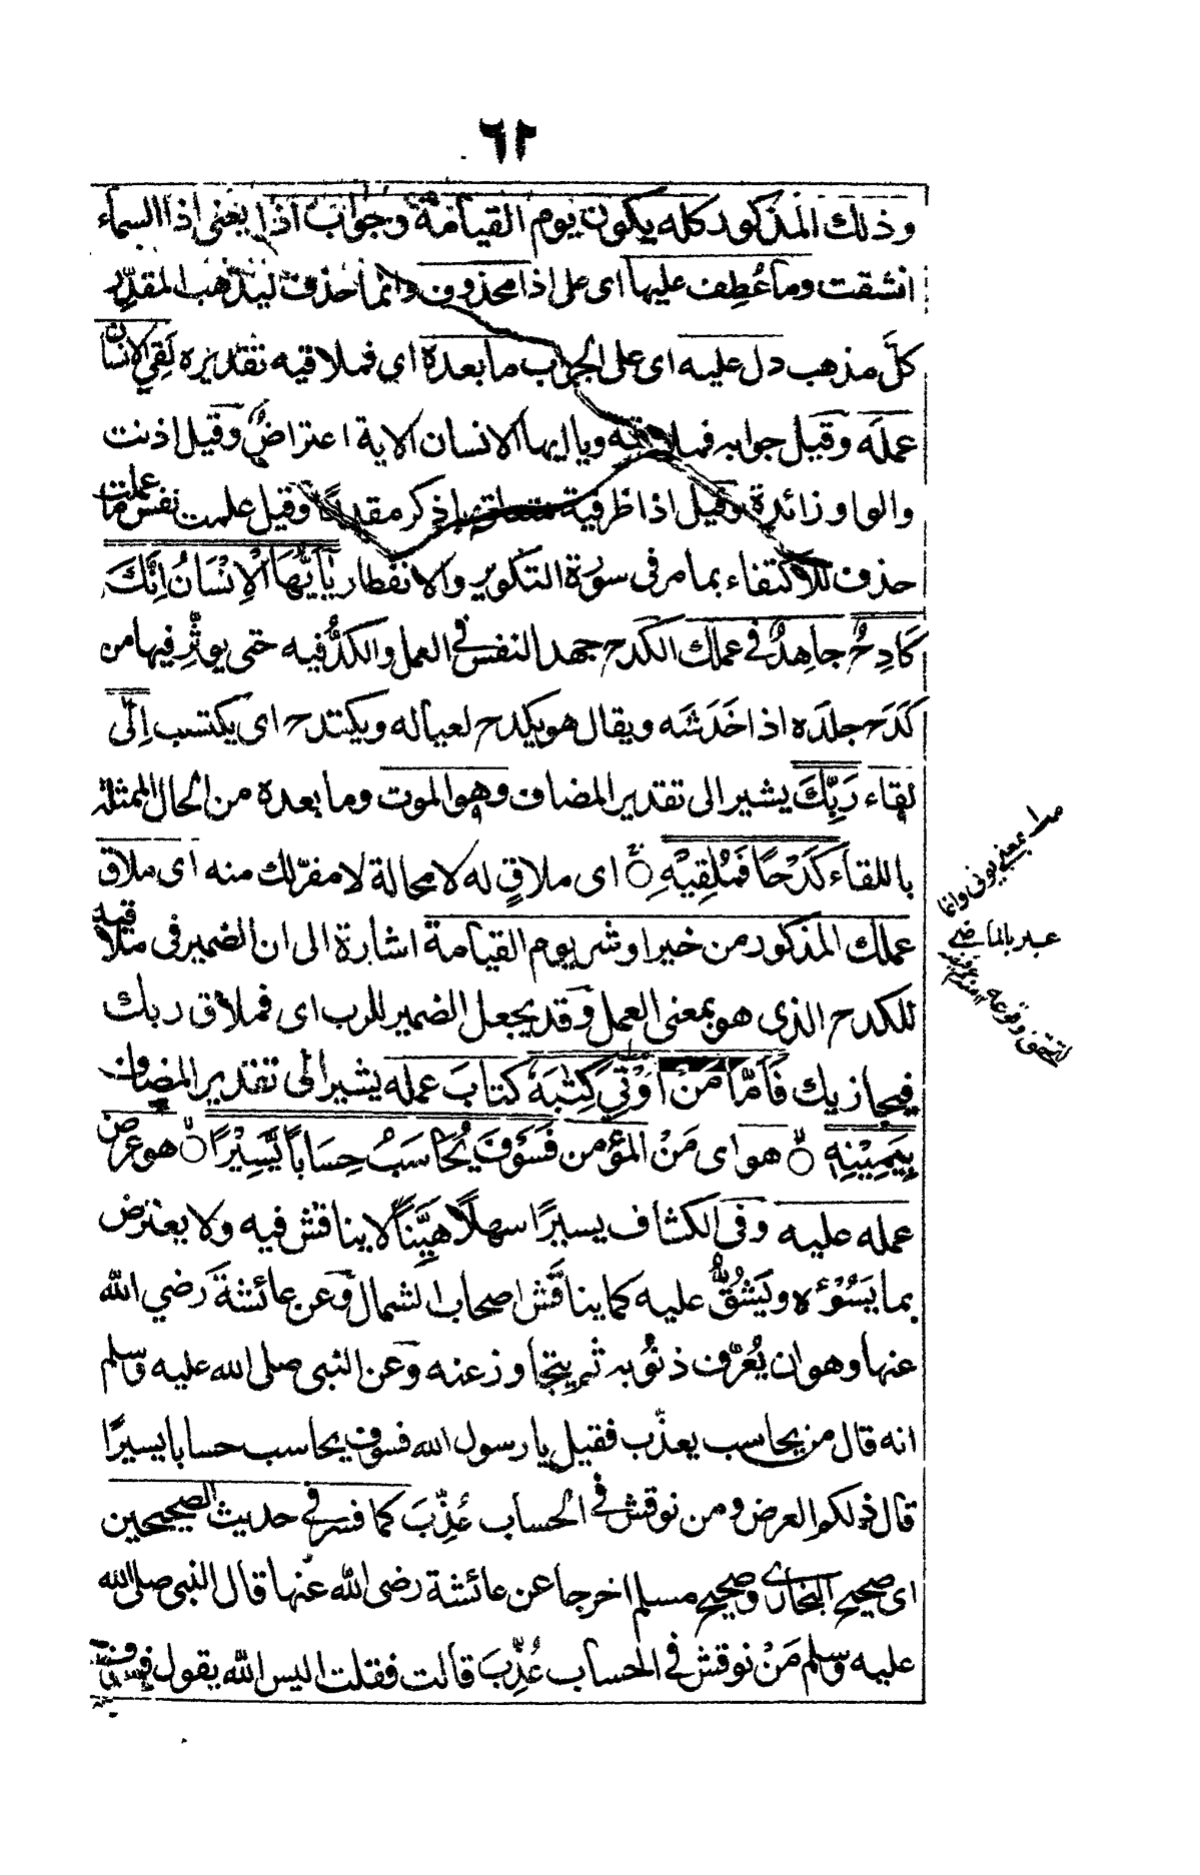 ٦٢
وذلك المذكور كله يكون يوم القيامة وجواب اذا يعنى اذا السماء
انشقت وما عُطِف عليها اى على اذا محذوف وانما حذف ليذهب المقدِّر
كلَّ مذهب دل عليه اى على الجواب ما بعده اى فملاقيه تقديره لَقِيَ الانسان
عملَه وقيل جوابه فملاقيه ويا ايها الانسان الاية اعتراضٌ وقيل اذنت
والواو زائدة وقيل اذا ظرفية متعلقة باذكر مقدرًا وقيل علمت نفس ما عملت
حذف للاكتفاء بما مر فى سورة التكوير والانفطار يٰۤاَيُّهَا الْاِنْسَانُ اِنَّكَ
كَادِحٌ جاهِدٌ فى عملك الكدح جهد النفس فى العمل والكدُّ فيه حتى يوثِّر فيها من
كَدَح جلدَه اذا خَدَشَه ويقال هو يكدح لعياله ويكتدح اى يكتسب اِلٰى
لقاء رَبِّكَ يشير الى تقدير المضاف وهو الموت وما بعده من الحال الممثلة
باللقاء كَدْحًا فَمُلٰقِيْهِ اى ملاقٍ له لا محالة لا مفرّ لك منه اى ملاق
عملك المذكور من خير او شر يوم القيامة اشارة الى ان الضمير فى ملاقيه
للكدح الذى هو بمعنى العمل وقد يجعل الضمير للرب اى فملاق ربك
فيجازيك فَاَمَّا مَنْ اُوْتِيَ كِتٰبَهٗ كتابَ عمله يشير الى تقدير المضاف
بِيَمِيْنِهٖ هو اى مَنْ المؤمن فَسَوْفَ يُحَاسَبُ حِسَابًا يَّسِيْرًا هو عرض
عمله عليه وفى الكشاف يسيرًا سهلًا هَيِّنًا لا يناقش فيه ولا يعترض
بما يَسُوْءه ويَشُقُّ عليه كما يناقَش اصحاب الشمال وعن عائشة رضي الله
عنها وهو ان يُعَرَّف ذنوبه ثم يتجاوز عنه وعن النبى صلى الله عليه وسلم
انه قال من يحاسب يعذّب فقيل يا رسول الله فسوف يحاسب حسابا يسيرًا
قال ذلكو العرض ومن نوقش فى الحساب عُذِّبَ كما فسر فى حديث الصحيحين
اى صحيح البخارى وصحيح مسلم اخرجا عن عائشة رضى الله عنها قال النبى صلى الله
عليه وسلم مَنْ نوقش فى الحساب عُذِّبَ قالت فقلت اليس الله يقول فسوف
بمعنى يوتى وانما
عبر بالماضى
لتحقق وقوعه